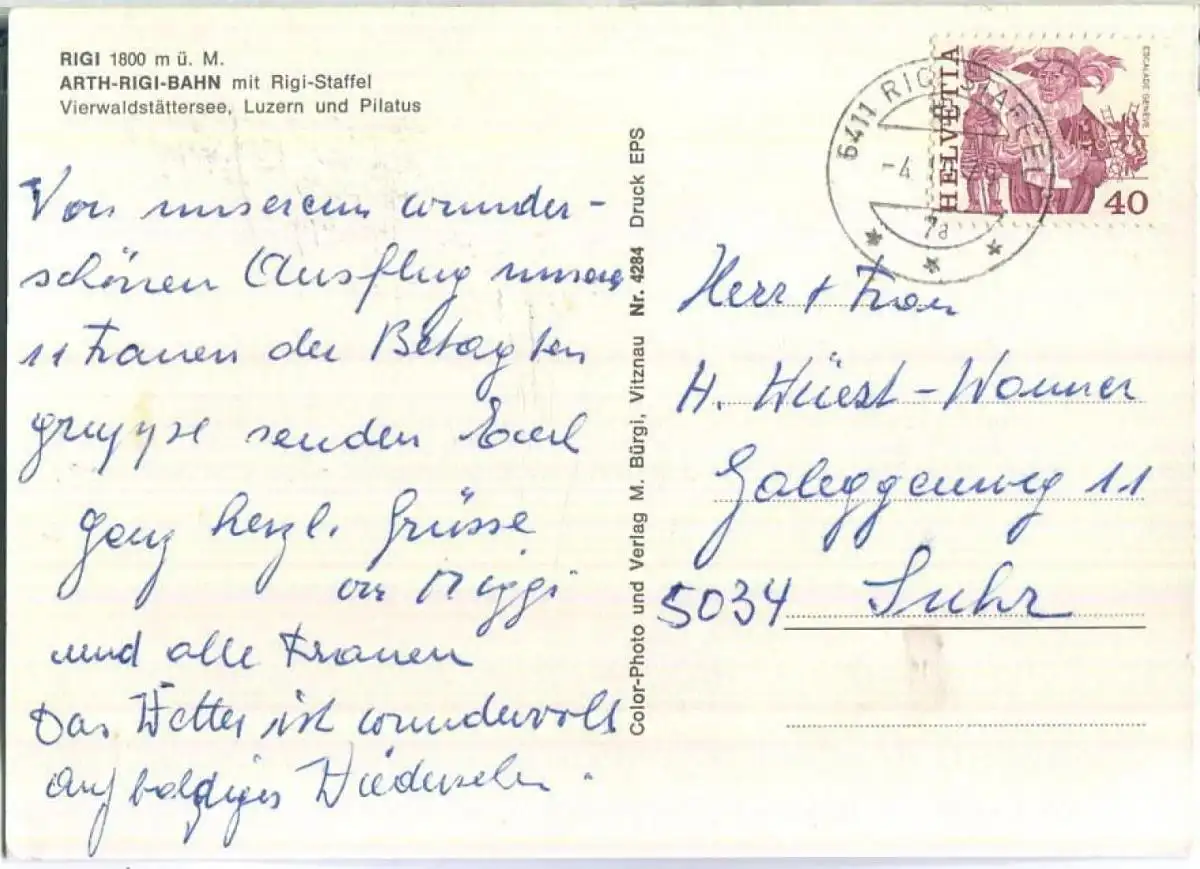 RIGI 1800 m ü. M.
ARTH-RIGI-BAHN mit Rigi-Staffel
Vierwaldstättersee, Luzern und Pilatus
Von unserem wunder-
schönen Ausflug unsere
11 Frauen der Betagten
gruppe senden Euch
ganz herzl. Grüsse
Meggi
und alle Frauen
Das Wetter ist wundervoll
auf baldiges Wiedersehn.
Color-Photo und Verlag M. Bürgi, Vitznau Nr. 4284 Druck EPS
6411 RIGI STAFFEL
-4.
HELVETIA
ESCALADE GENÈVE
40
Herr + Frau
H. Hüest-Wanner
Galeggenweg 11
5034 Suhr